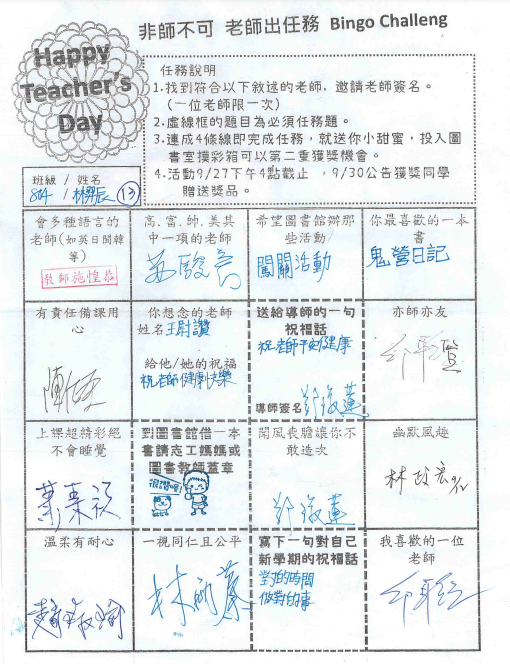 非師不可 老師出任務 Bingo Challeng
Happy
Teacher's
Day
任務說明
1.找到符合以下敘述的老師,邀請老師簽名。
(一位老師限一次)
2.虛線框的題目為必須任務題。
3.連成4條線即完成任務,就送你小甜蜜,投入圖
書室摸彩箱可以第二重獲獎機會。
4.活動9/27下午4點截止 ,9/30公告獲獎同學
贈送獎品。
班級 / 姓名
804 / 13
會多種語言的
老師(如英日閩韓
等)
教師施惶恭
高,富,帥,美其
中一項的老師
希望圖書館辦那
些活動
闖關活動
你最喜歡的一本
書
鬼營日記
有責任備課用
心
你想念的老師
姓名王尉讚
給他/她的祝福
祝老師健康快樂
送給導師的一句
祝福話
祝老師平安健康
導師簽名 鄧淑蓮
亦師亦友
上課超精彩絕
不會睡覺
對圖書館借一本
書請志工媽媽或
圖書教師蓋章
很讚喔!
聞風喪膽讓你不
敢造次
鄧淑蓮
幽默風趣
溫柔有耐心
一視同仁且公平
寫下一句對自己
新學期的祝福話
對的時間
做對的事
我喜歡的一位
老師